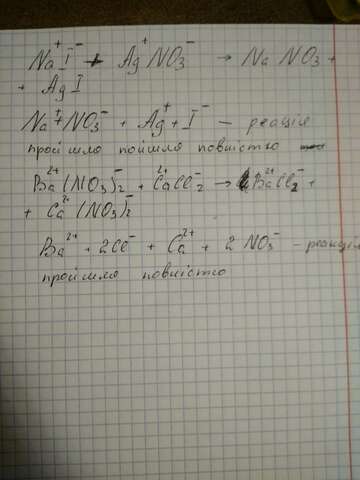 Na⁺I⁻ + Ag⁺NO₃⁻ → NaNO₃ +
+ AgI
Na⁺ + NO₃⁻ + Ag⁺ + I⁻ — реакція
пройшло пойшла повністю
Ba²⁺(NO₃)₂⁻ + Ca²⁺Cl₂⁻ → Ba²⁺Cl₂⁻ +
+ Ca²⁺(NO₃)₂⁻
Ba²⁺ + 2Cl⁻ + Ca²⁺ + 2NO₃⁻ – реакція
пройшла повністю